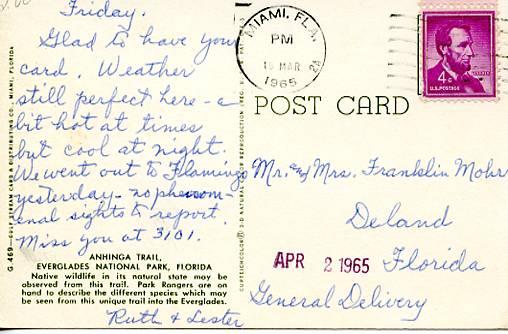 Friday.
Glad to have your
card. Weather
still perfect here - a
bit hot at times
but cool at night.
We went out to Flamingo
yesterday - no phenom-
enal sights to report.
Miss you at 3101.
ANHINGA TRAIL,
EVERGLADES NATIONAL PARK, FLORIDA
Native wildlife in its natural state may be
observed from this trail. Park Rangers are on
hand to describe the different species which may
be seen from this unique trail into the Everglades.
Ruth & Lester
G-469—GULF STREAM CARD & DISTRIBUTING CO., MIAMI, FLORIDA
MIAMI, FLA.
PM
MAR
1965
4¢
U.S. POSTAGE
POST CARD
Mr. and Mrs. Franklin Mohr
Deland
APR 2 1965
Florida
General Delivery